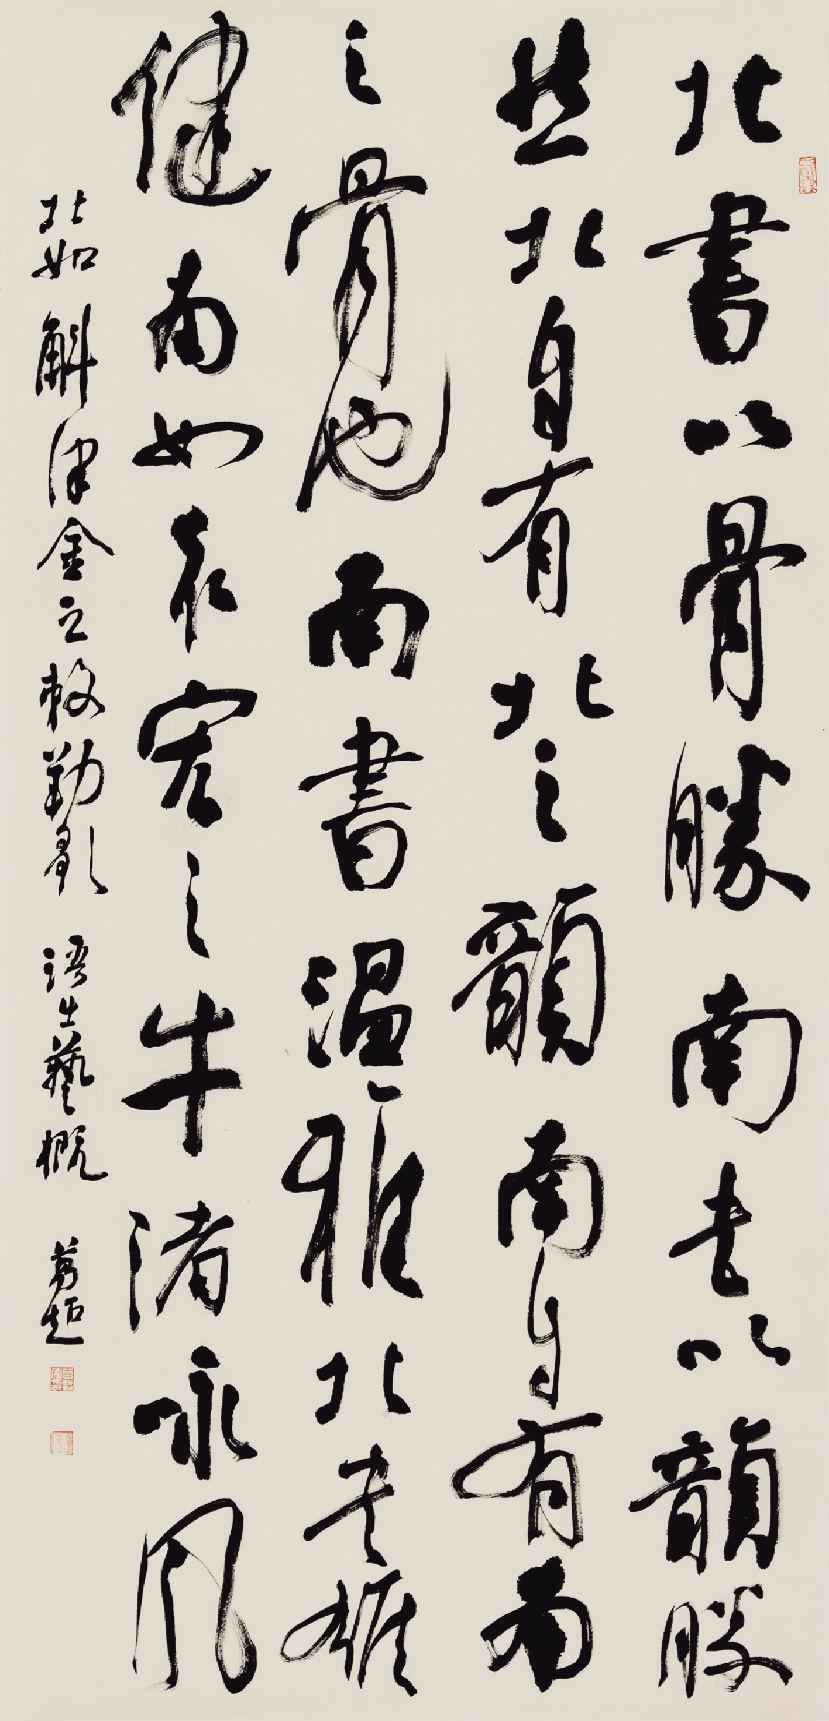 北書以骨勝南书以韻勝
然北自有北之韻南自有南
之骨也南書温雅北书雄
健南如袁宏之牛渚咏风
北如斛律金之敕勒歌 语出藝概